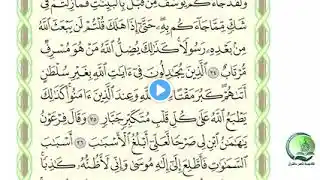 ولقد جاءكم يوسف من قبل بالبينت فما زلتم في
شك مما جاءكم به حتى إذا هلك قلتم لن يبعث الله
من بعده رسولا كذلك يضل الله من هو مسرف
مرتاب ٣٤ الذين يجدلون في ءايت الله بغير سلطن
أتىهم كبر مقتا عند الله وعند الذين ءامنوا كذلك
يطبع الله على كل قلب متكبر جبار ٣٥ وقال فرعون
يهمن ابن لي صرحا لعلي أبلغ الأسبب ٣٦ أسبب
السموت فأطلع إلى إله موسى وإني لأظنه كذبا